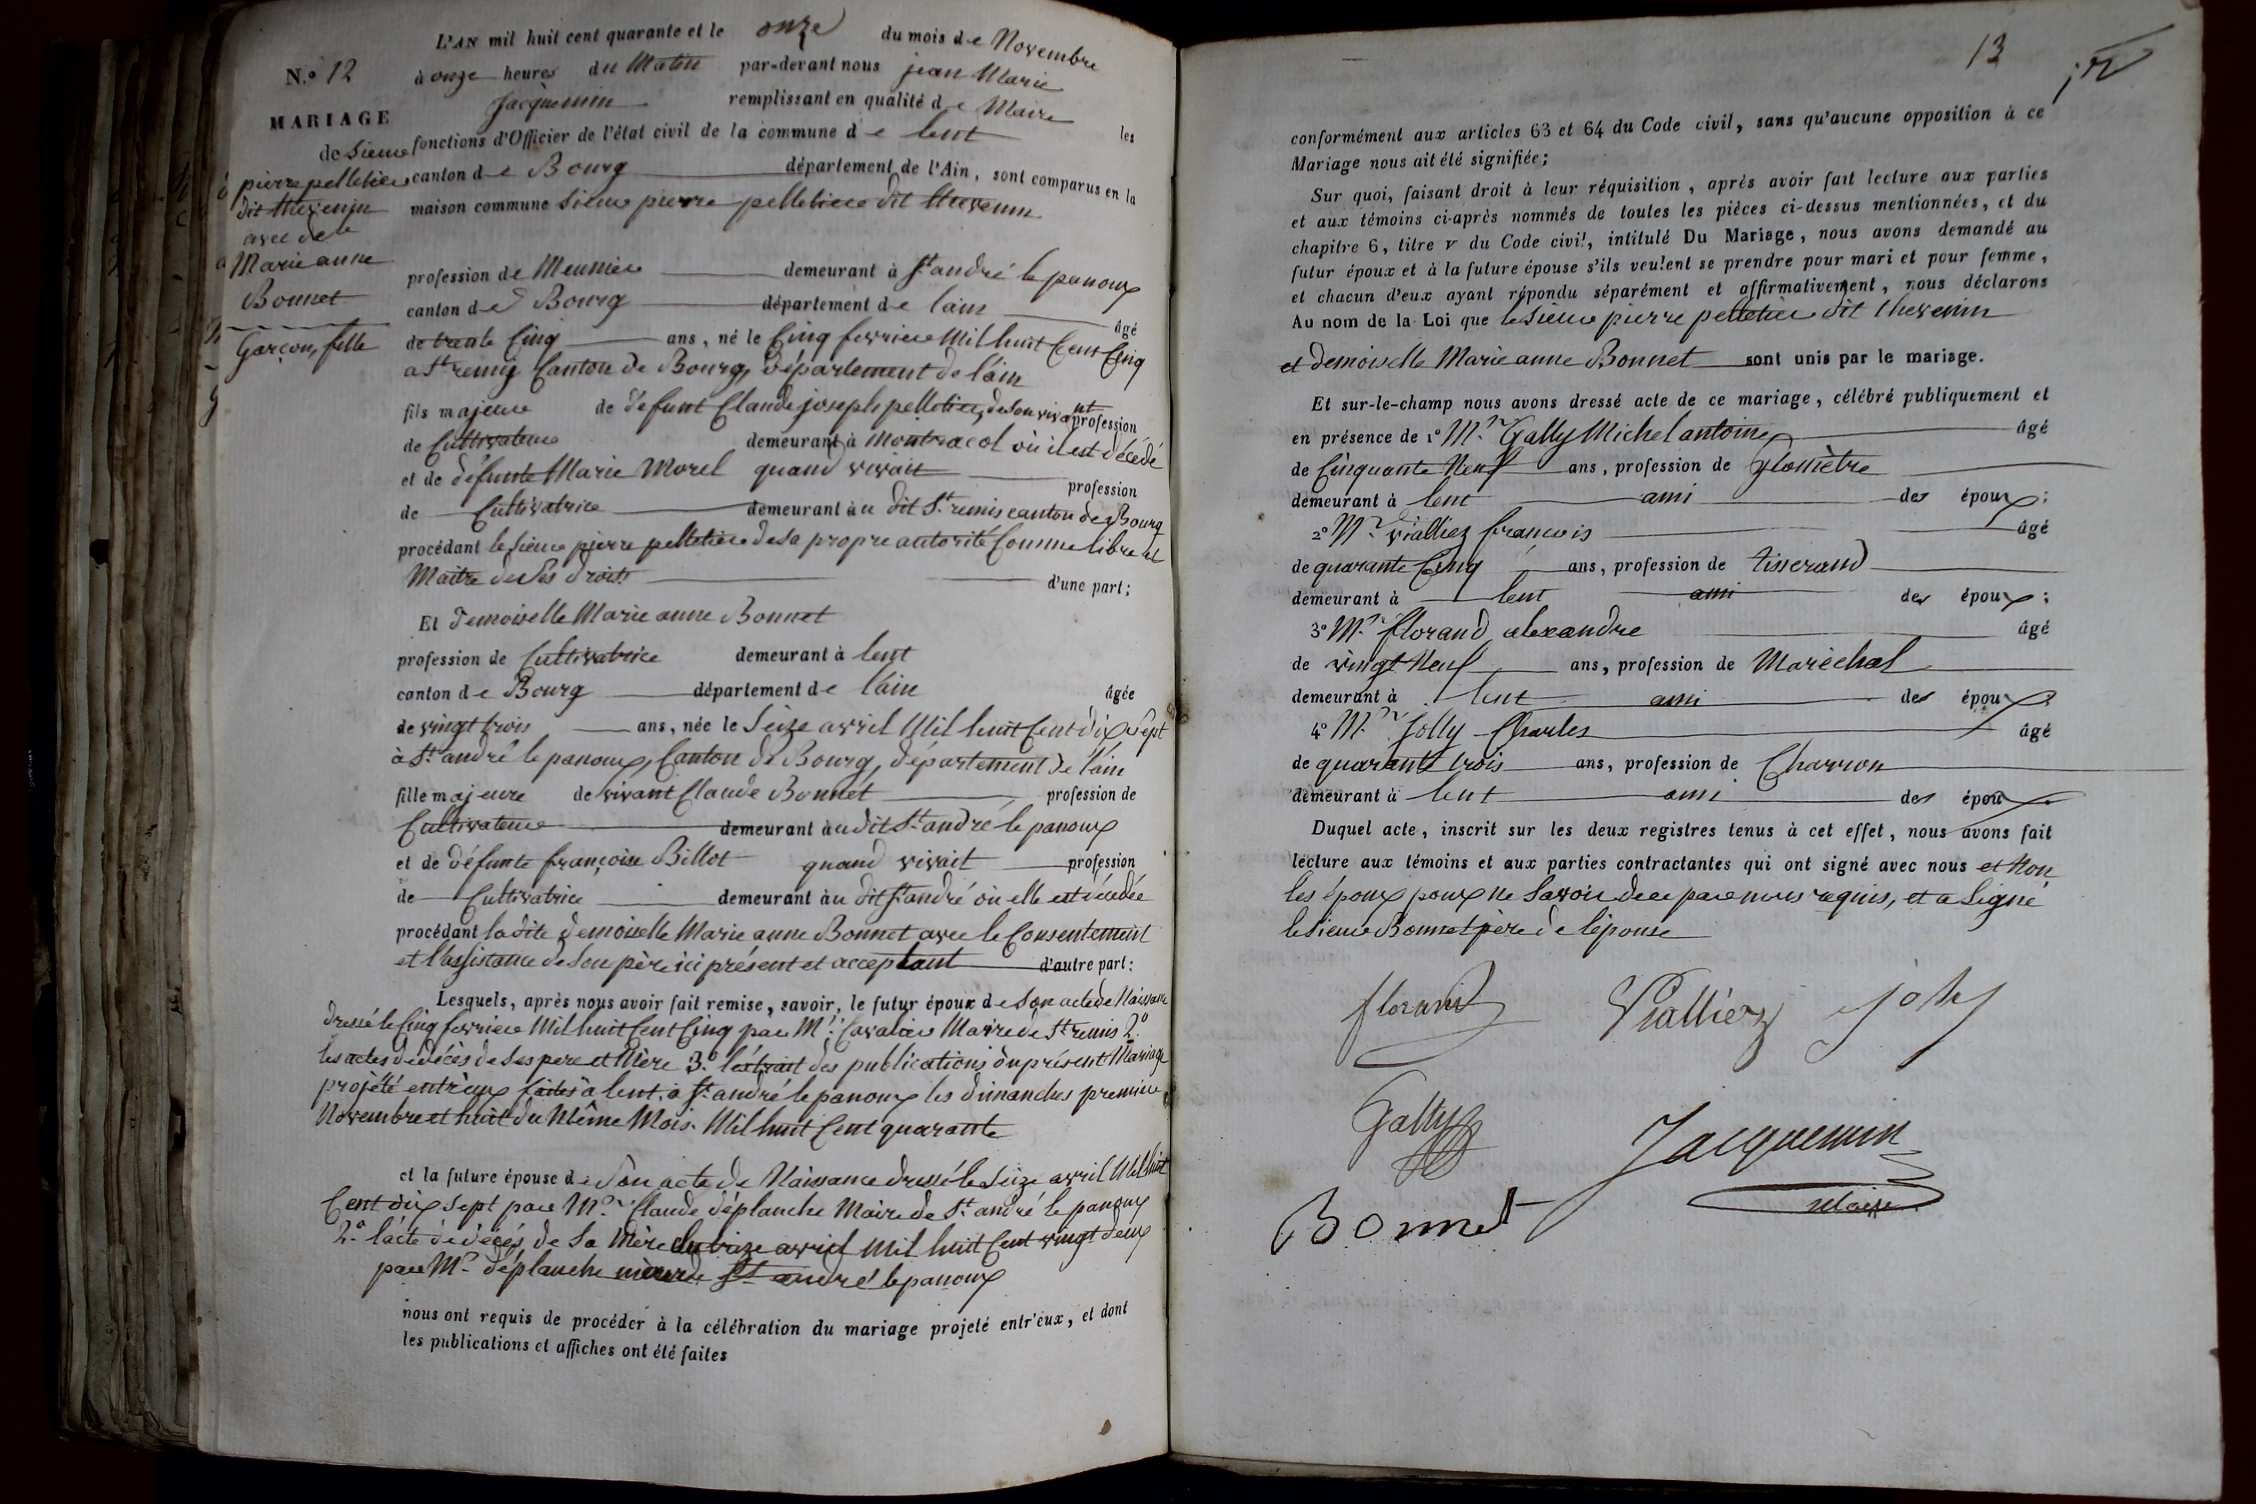 L'AN mil huit cent quarante et le onze du mois de Novembre
N.º 12
à onze heures du Matin par-devant nous jean Marie
Jacquemin remplissant en qualité de Maire les
MARIAGE
fonctions d'Officier de l'état civil de la commune de lent
de Sieur
pierre pelletier
dit thevenin
avec delle
Marie anne
Bonnet
Garçon, fille
canton de Bourg département de l'Ain, sont comparus en la
maison commune Sieur pierre pelletier dit thevenin
profession de Meunier demeurant à St andré le panoux
canton de Bourg département de l'ain âgé
de trente Cinq ans, né le Cinq fevrier Mil huit Cent Cinq
a St remy Canton de Bourg, département de l'ain
fils majeur de défunt Claude joseph pelletier, de Son vivant profession
de Cultivateur demeurant à Montracol où il est décédé
et de défunte Marie Morel quand vivait profession
de Cultivatrice demeurant au dit St remis canton de Bourg
procédant le Sieur pierre pelletier de Sa propre autorité Comme libre et
Maitre de Ses droits d'une part;
Et Demoiselle Marie anne Bonnet
profession de Cultivatrice demeurant à lent
canton de Bourg département de l'ain âgée
de vingt trois ans, née le Seize avril Mil huit Cent dix Sept
à St andré le panoux, Canton de Bourg, département de l'ain
fille majeure de vivant Claude Bonnet profession de
Cultivateur demeurant au dit St andré le panoux
et de défunte françoise Billot quand vivait profession
de Cultivatrice demeurant au dit St andré où elle est décédée
procédant la dite Demoiselle Marie anne Bonnet avec le Consentement
et l'assistance de Son père ici présent et acceptant d'autre part:
Lesquels, après nous avoir fait remise, savoir, le futur époux de Son acte de Naissance
dressé le Cinq fevrier Mil huit Cent Cinq par Mr Cavalier Maire de St remis 2.º
les actes de décès de Ses pere et Mère 3.º l'extrait des publications du présent Mariage
projété entr'eux faites à lent, a St andré le panoux les dimanches premier
Novembre et huit du Même Mois. Mil huit Cent quarante
et la future épouse de Son acte de Naissance dressé le Seize avril Mil huit
Cent dix Sept par Mr Claude déplanche Maire de St andré le panoux
2.º l'acte de décés de Sa Mère du avril Mil huit Cent vingt deux
par Mr déplanche St andré le panoux
nous ont requis de procéder à la célébration du mariage projeté entr'eux, et dont
les publications et affiches ont été faites
13
conformément aux articles 63 et 64 du Code civil, sans qu'aucune opposition à ce
Mariage nous ait été signifiée;
Sur quoi, faisant droit à leur réquisition, après avoir fait lecture aux parties
et aux témoins ci-après nommés de toutes les pièces ci-dessus mentionnées, et du
chapitre 6, titre v du Code civil, intitulé Du Mariage, nous avons demandé au
futur époux et à la future épouse s'ils veulent se prendre pour mari et pour femme,
et chacun d'eux ayant répondu séparément et affirmativement, nous déclarons
Au nom de la Loi que le Sieur pierre pelletier dit thevenin
et demoiselle Marie anne Bonnet sont unis par le mariage.
Et sur-le-champ nous avons dressé acte de ce mariage, célébré publiquement et
en présence de 1º Mr Gally Michel antoine âgé
de Cinquante Neuf ans, profession de géomètre
demeurant à lent ami des époux;
2º Mr vialliez francois âgé
de quarante Cinq ans, profession de tisserand
demeurant à lent ami des époux;
3º Mr florand alexandre âgé
de vingt Neuf ans, profession de Maréchal
demeurant à lent ami des époux
4º Mr Jolly Charles âgé
de quarante trois ans, profession de Charron
demeurant à lent ami des époux.
Duquel acte, inscrit sur les deux registres tenus à cet effet, nous avons fait
lecture aux témoins et aux parties contractantes qui ont signé avec nous et Non
les époux pour ne Savoir de ce par nous requis, et a Signé
le Sieur Bonnet père de l'épouse
florand Vialliez joly
Gally Jacquemin
Maire
Bonnet